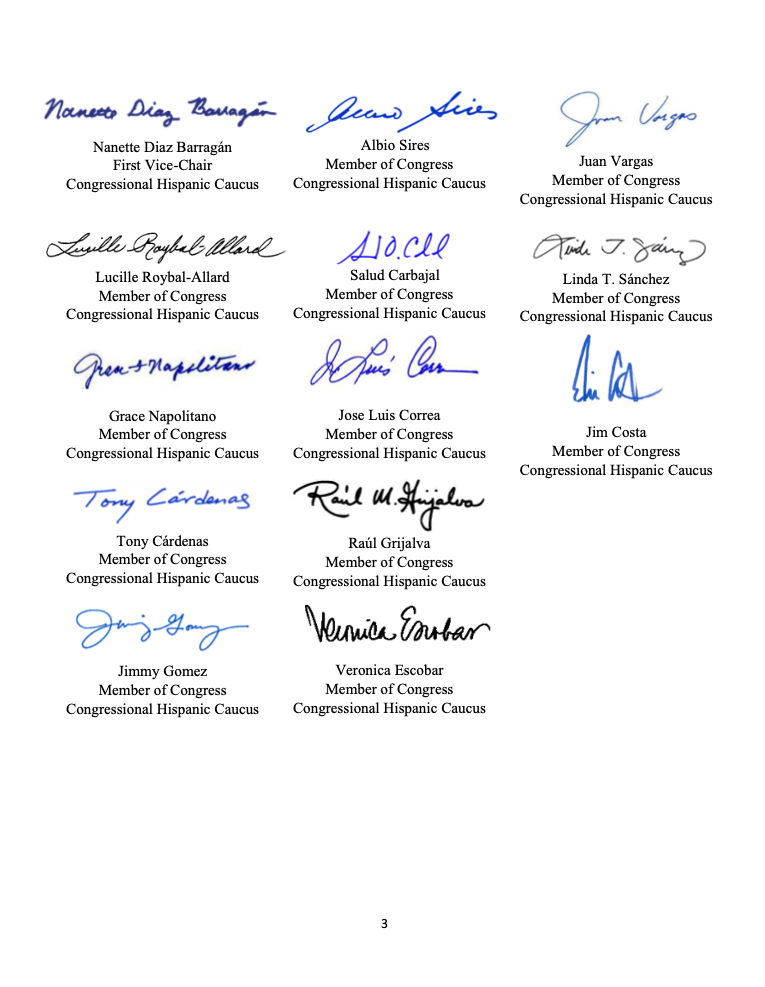 Nanette Diaz Barragán
Nanette Diaz Barragán
First Vice-Chair
Congressional Hispanic Caucus
Albio Sires
Albio Sires
Member of Congress
Congressional Hispanic Caucus
Juan Vargas
Juan Vargas
Member of Congress
Congressional Hispanic Caucus
Lucille Roybal-Allard
Lucille Roybal-Allard
Member of Congress
Congressional Hispanic Caucus
Salud Carbajal
Member of Congress
Congressional Hispanic Caucus
Linda T. Sánchez
Member of Congress
Congressional Hispanic Caucus
Grace Napolitano
Member of Congress
Congressional Hispanic Caucus
Jose Luis Correa
Member of Congress
Congressional Hispanic Caucus
Jim Costa
Member of Congress
Congressional Hispanic Caucus
Tony Cárdenas
Tony Cárdenas
Member of Congress
Congressional Hispanic Caucus
Raúl M. Grijalva
Raúl Grijalva
Member of Congress
Congressional Hispanic Caucus
Jimmy Gomez
Member of Congress
Congressional Hispanic Caucus
Veronica Escobar
Veronica Escobar
Member of Congress
Congressional Hispanic Caucus
3